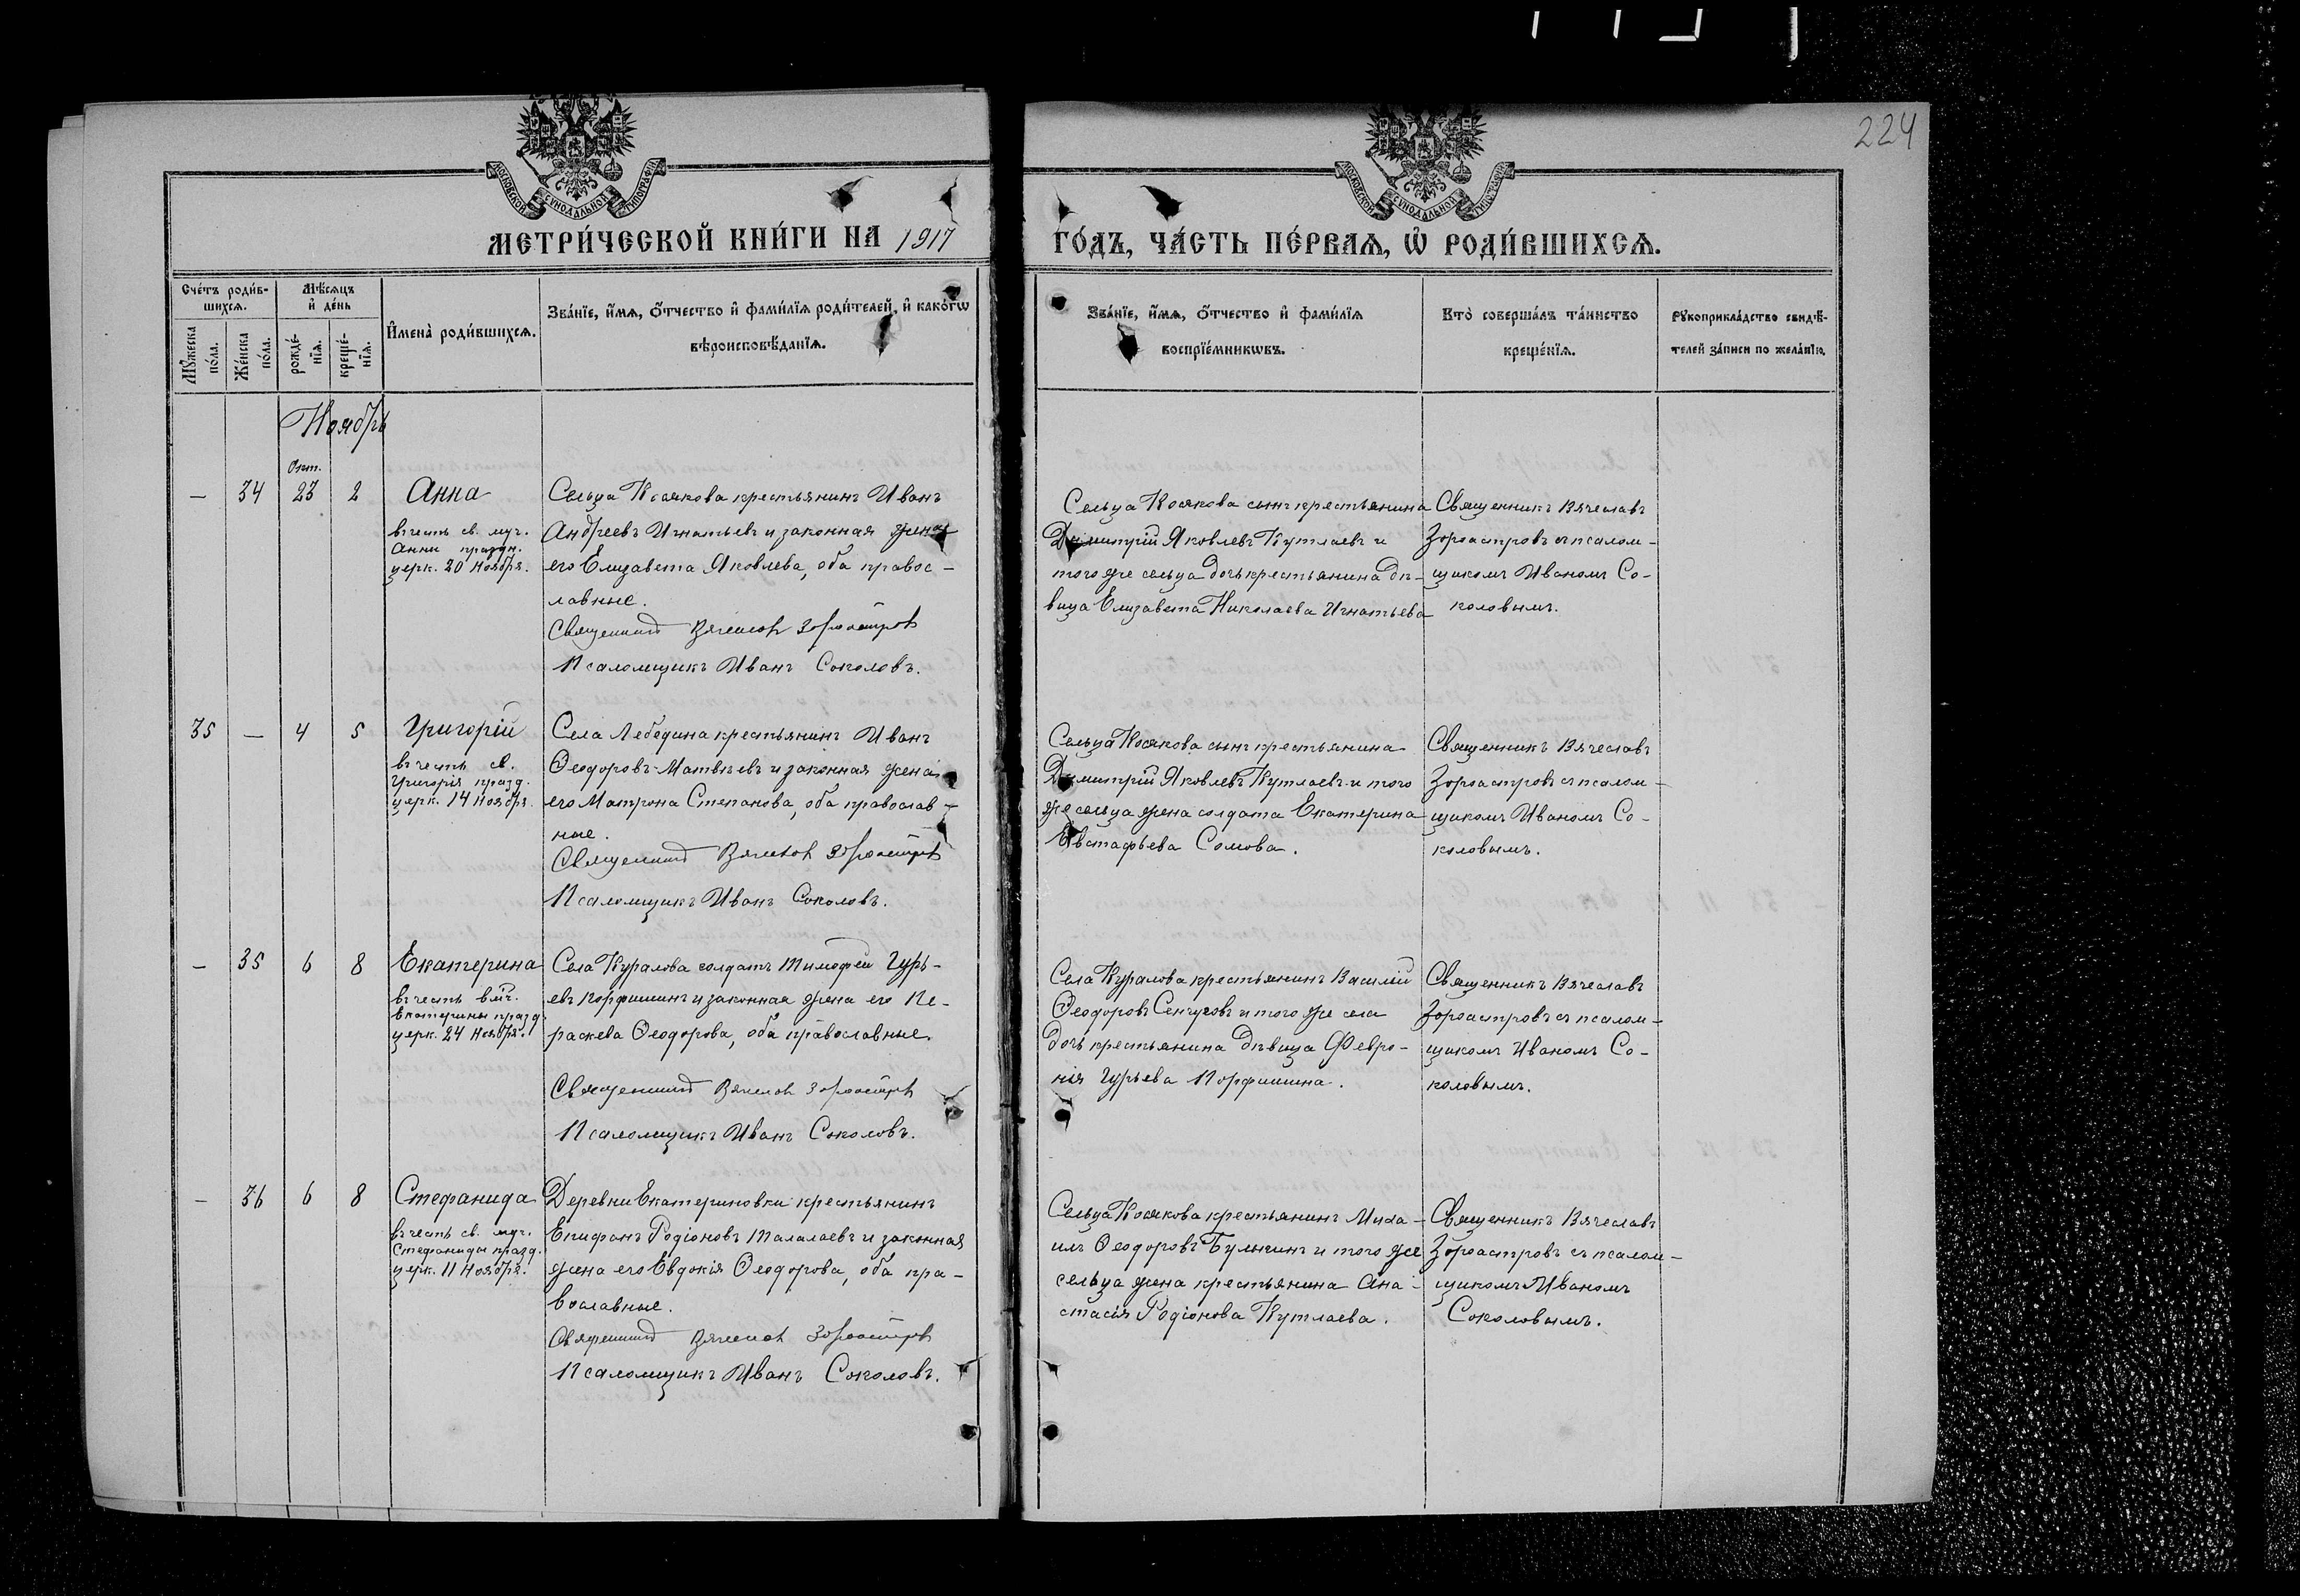 224
МОСКОВСКОЙ СѴНОДАЛЬНОЙ ТИПОГРАФІИ
МОСКОВСКОЙ СѴНОДАЛЬНОЙ ТИПОГРАФІИ
МЕТРИ́ЧЕСКОЙ КНИ́ГИ НА 1917
ГО́ДЪ, ЧА́СТЬ ПЕ́РВАѦ, Ѡ҆ РОДИ́ВШИХСѦ.
Сче́тъ роди́в-
шихсѧ.
Мѣ́сѧцъ
и҆ де́нь
Мꙋ́жеска
по́ла.
Же́нска
по́ла.
рожде́-
нїѧ.
креще́-
нїѧ.
И҆мена̀ роди́вшихсѧ.
Зва́нїе, и҆́мѧ, ѻ҆́тчество и҆ фами́лїѧ роди́телей, и҆ како́гѡ
вѣроисповѣ́данїѧ.
Зва́нїе, и҆́мѧ, ѻ҆́тчество и҆ фами́лїѧ
воспрїе́мникѡвъ.
Кто̀ соверша́лъ та́инство
креще́нїѧ.
Рꙋкоприкла́дство свидѣ́-
телей за́писи по жела́нїю.
Ноябрь
Окт.
— 34 23 2 Анна
въ честь св. муч.
Анны праздн.
церк. 20 Ноября.
Сельца Косякова крестьянинъ Иванъ
Андреевъ Игнатьевъ и законная жена
его Елизавета Яковлева, оба правос-
лавные.
Священникъ Вячеславъ Зороастровъ
Псаломщикъ Иванъ Соколовъ.
Сельца Косякова сынъ крестьянина
Димитрій Яковлевъ Кутлаевъ и
того же сельца дочь крестьянина дѣ-
вица Елизавета Николаева Игнатьева
Священникъ Вячеславъ
Зороастровъ съ псалом-
щикомъ Иваномъ Со-
коловымъ.
35 — 4 5 Григорій
въ честь св.
Григорія празд.
церк. 14 Ноября.
Села Лебедина крестьянинъ Иванъ
Ѳеодоровъ Матвѣевъ и законная жена
его Матрона Степанова, оба православ-
ные.
Священникъ Вячеславъ Зороастровъ
Псаломщикъ Иванъ Соколовъ.
Сельца Косякова сынъ крестьянина
Димитрій Яковлевъ Кутлаевъ и того
же сельца жена солдата Екатерина
Евстафьева Сомова.
Священникъ Вячеславъ
Зороастровъ съ псалом-
щикомъ Иваномъ Со-
коловымъ.
— 35 6 8 Екатерина
въ честь влмч.
Екатерины празд.
церк. 24 Ноября.
Села Куралова солдатъ Тимофей Гурь-
евъ Порфишинъ и законная жена его Па-
раскева Ѳеодорова, оба православные.
Священникъ Вячеславъ Зороастровъ
Псаломщикъ Иванъ Соколовъ.
Села Куралова крестьянинъ Василій
Ѳеодоровъ Сенгуговъ и того же села
дочь крестьянина дѣвица Февро-
нія Гурьева Порфишина.
Священникъ Вячеславъ
Зороастровъ съ псалом-
щикомъ Иваномъ Со-
коловымъ.
— 36 6 8 Стефанида
въ честь св. муч.
Стефаниды празд.
церк. 11 Ноября.
Деревни Екатериновки крестьянинъ
Епифанъ Родіоновъ Талалаевъ и законная
жена его Евдокія Ѳеодорова, оба пра-
вославные.
Священникъ Вячеславъ Зороастровъ
Псаломщикъ Иванъ Соколовъ.
Сельца Косякова крестьянинъ Миха-
илъ Ѳеодоровъ Булыгинъ и того же
сельца жена крестьянина Ана-
стасія Родіонова Кутлаева.
Священникъ Вячеславъ
Зороастровъ съ псалом-
щикомъ Иваномъ
Соколовымъ.